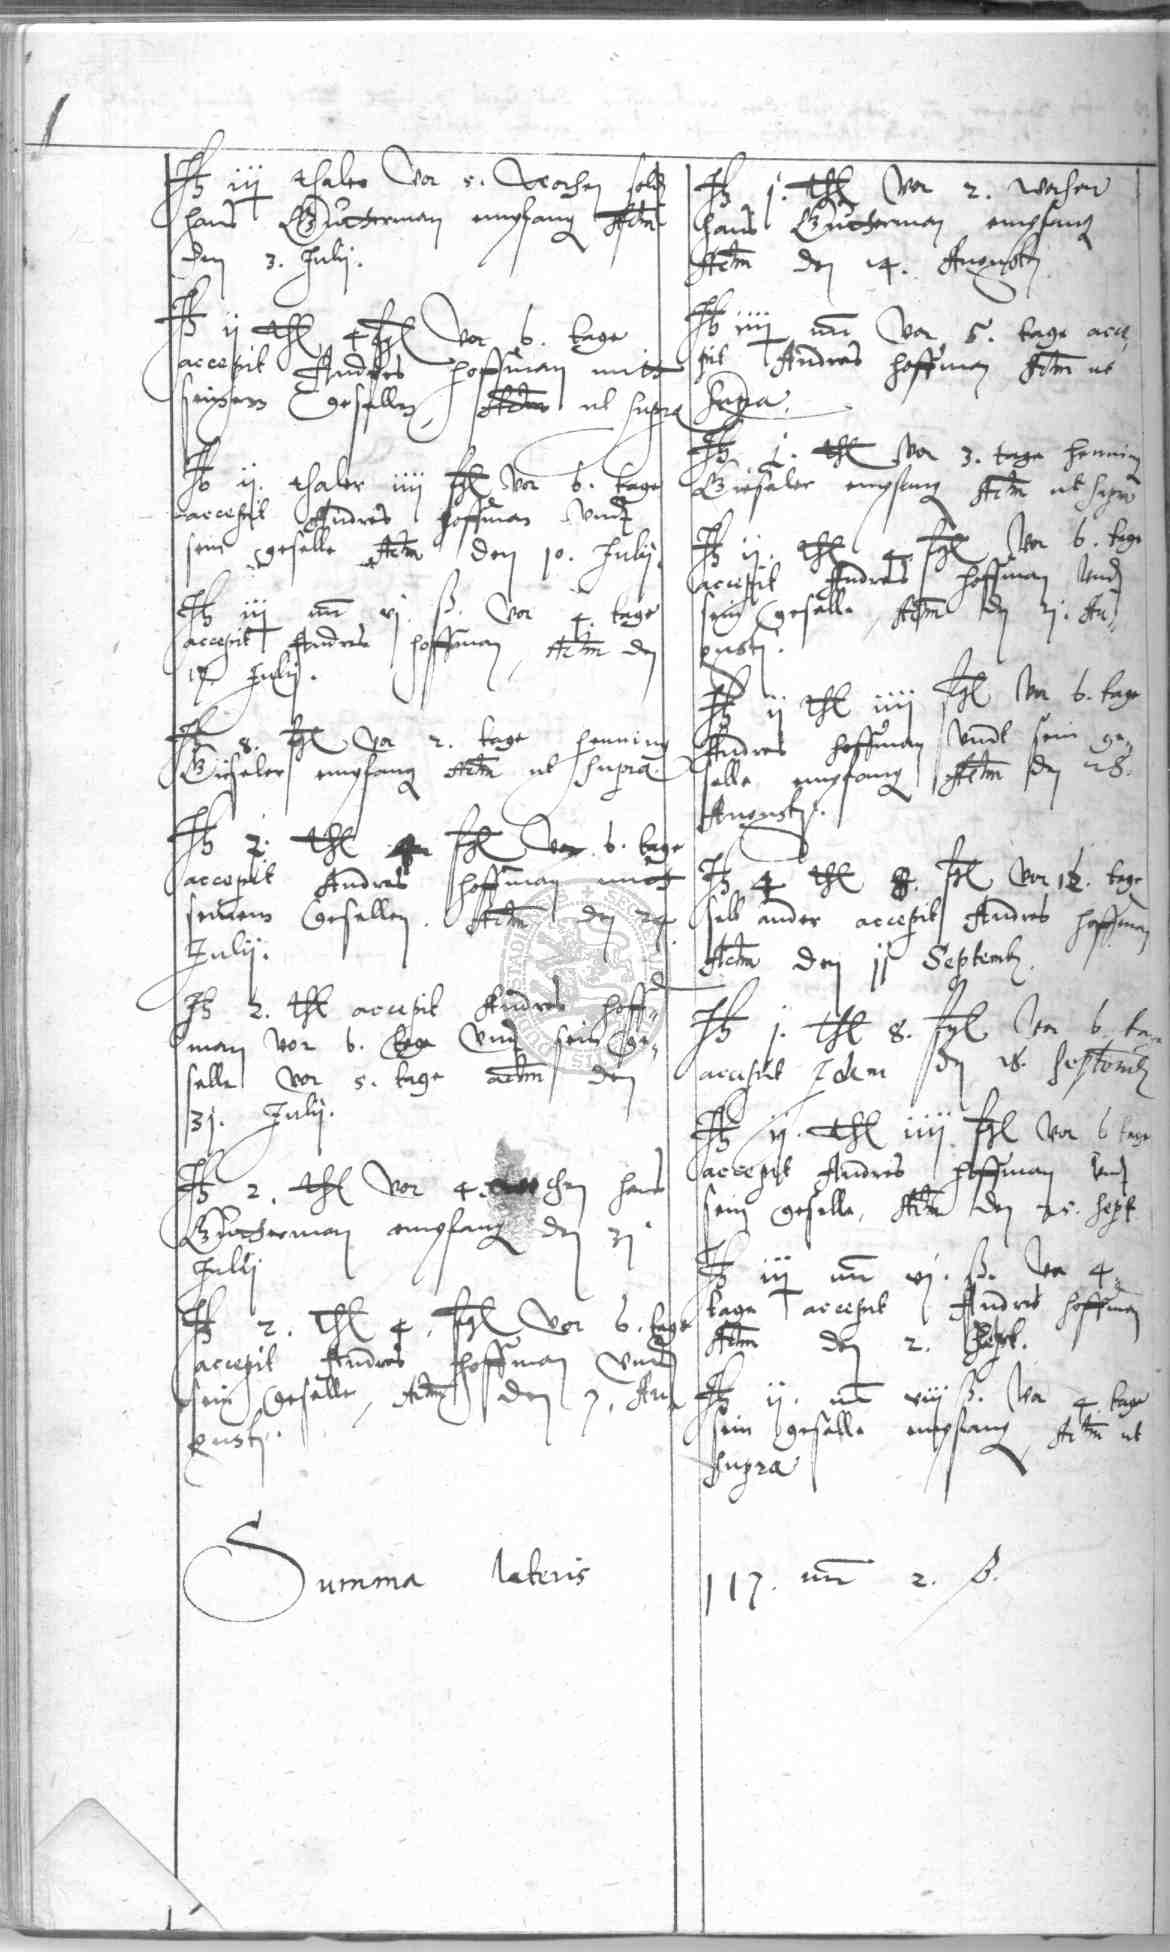 Jtz iij thaler Vor 5. Wochen
hans Guttterman empfang Actm
den 3. Julij.
Jtz ij thl 4 fgl Vor 6. tage
accepit Andres hoffman mitt
seinem Gesellen, ut supra
Jtz ij. thaler iiij fgl Vor 6. tage
accepit Andres hoffman Vndt
sein geselle Actm den 10. Julij.
Jtz iij mr vj. ß. Vor 4. tage
accepit Andres hoffman, Actm den
17 Julij.
Jtz 8. fgl Vor 2. tage henning
Gieseler empfang Actm ut supra.
Jtz 2. thl 4 fgl Vor 6. tage
accepit Andres hoffman mitt
seinem Gesellen. Actm den 24.
Julij.
Jtz 2. thl accepit Andres hoff-
man vor 6. tage Vnd sein Ge-
selle Vor 5. tage actm den
31. Julij.
Jtz 2. thl Vor 4. chen hans
Gutterman empfang den 31
Julij
Jtz 2. thl 4. fgl Vor 6. tage
accepit Andres hoffman Vndt
sein Geselle, Actm den 7. Au
gustj.
Jtz 1. thl Vor 2. wochen
hans Gutterman empfang
Actm den 14. Augustj
Jtz iiij mr Vor 5. tage acce,
pit Andres hoffman Actm ut
supra.
Jtz 1. thl Vor 3. tage henning
Gieseler empfang Actm ut supra
Jtz ij. thl 4 fgl Vor 6. tage
accepit Andres hoffman Vnd
sein geselle, Actm den 21. Au,
gustj.
Jtz ij thl iiij fgl Vor 6. tage
Andres hoffman Vndt sein ge,
selle empfang Actm den 28.
Augustj.
Jtz 4 thl 8. fgl Vor 12. tage
selb ander accepit Andres hoffman
Actm den 11 Septemb.
Jtz 1. thl 8. fgl Vor 6. ta
accepit Idem den 18. Septemb
Jtz ij. thl iiij. fgl Vor 6 tage
accepit Andres hoffman Vnd
sein Geselle, Actm den 25. Sept.
Jtz iij mr vj. ß. Vor 4.
tage accepit Andres hoffman
Actm den 2.
Jtz ij. mr viij ß. Vor 4. tage
sein geselle empfang, Actm ut
supra
Summa lateris 117. mr 2. ß.